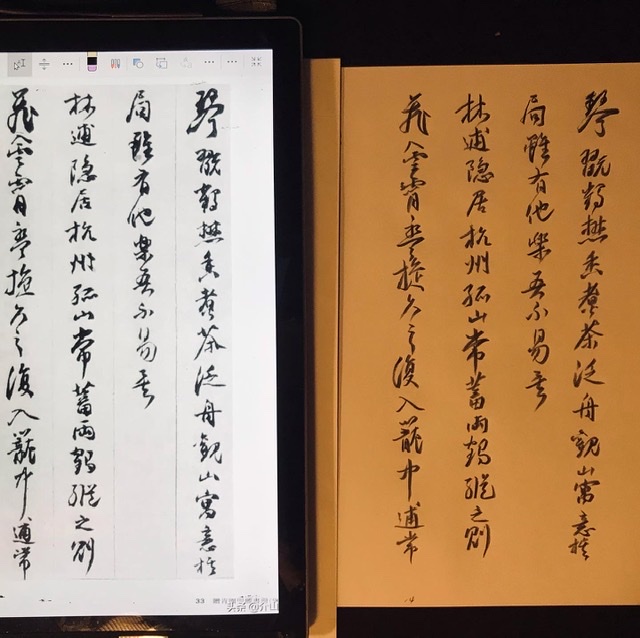 琴翫鶴焚香煮茶泛舟觀山寓意棋
局雖有他樂吾不易焉
林逋隐居杭州孤山常蓄兩鶴縱之則
飛入雲霄盤旋久之復入籠中逋常
33
头条@介山
琴翫鶴焚香煮茶泛舟觀山寓意棋
局雖有他樂吾不易焉
林逋隐居杭州孤山常蓄兩鶴縱之則
飛入雲霄盤旋久之復入籠中逋常